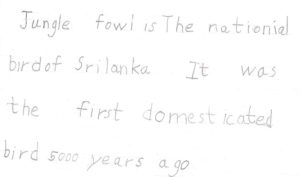 Jungle fowl is The nationial
bird of Srilanka It was
the first domesticated
bird 5000 years ago